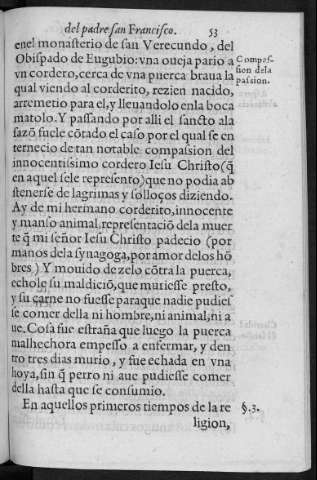 del padre san Francisco. 53
enel monasterio de san Verecundo, del
Obispado de Eugubio: vna oueja pario a
vn cordero, cerca de vna puerca braua la
qual viendo al corderito, rezien nacido,
arremetio para el, y lleuandolo en la boca
matolo. Y passando por alli el sancto a la
sazõ fuele cõtado el caso por el qual se en
ternecio de tan notable compassion del
innocentissimo cordero Iesu Christo (q̃
en aquel sele represento) que no podia ab
stenerse de lagrimas y solloços diziendo.
Ay de mi hermano corderito, innocente
y manso animal, representaciõ dela muer
te q̃ mi señor Iesu Christo padecio (por
manos dela synagoga, por amor delos hõ
bres) Y mouido de zelo cõtra la puerca,
echole su maldiciõ, que muriesse presto,
y su carne no fuesse para que nadie pudies
se comer della ni hombre, ni animal, ni a
ue. Cosa fue estraña que luego la puerca
malhechora empesso a enfermar, y den
tro tres dias murio, y fue echada en vna
hoya, sin q̃ perro ni aue pudiesse comer
della hasta que se consumio.
En aquellos primeros tiempos de la re
ligion,
Compas-
sion dela
passion.
§.3.